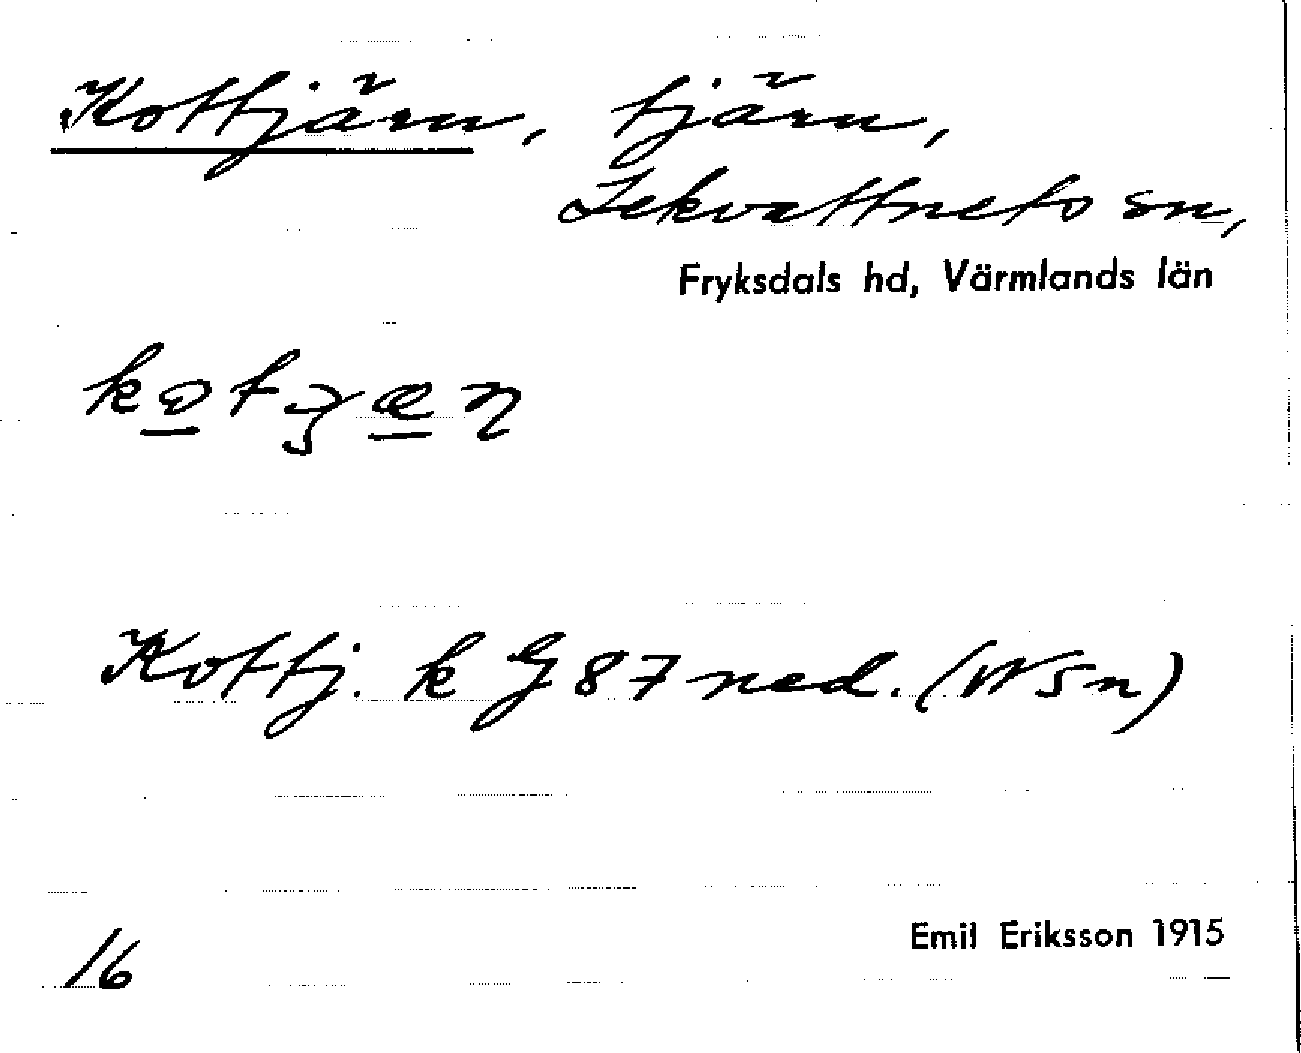 Kottjärn, tjärn,
Lekvattnets sn,
Fryksdals hd, Värmlands län
Kottj. k G 87 ned. (WSn)
Emil Eriksson 1915
16